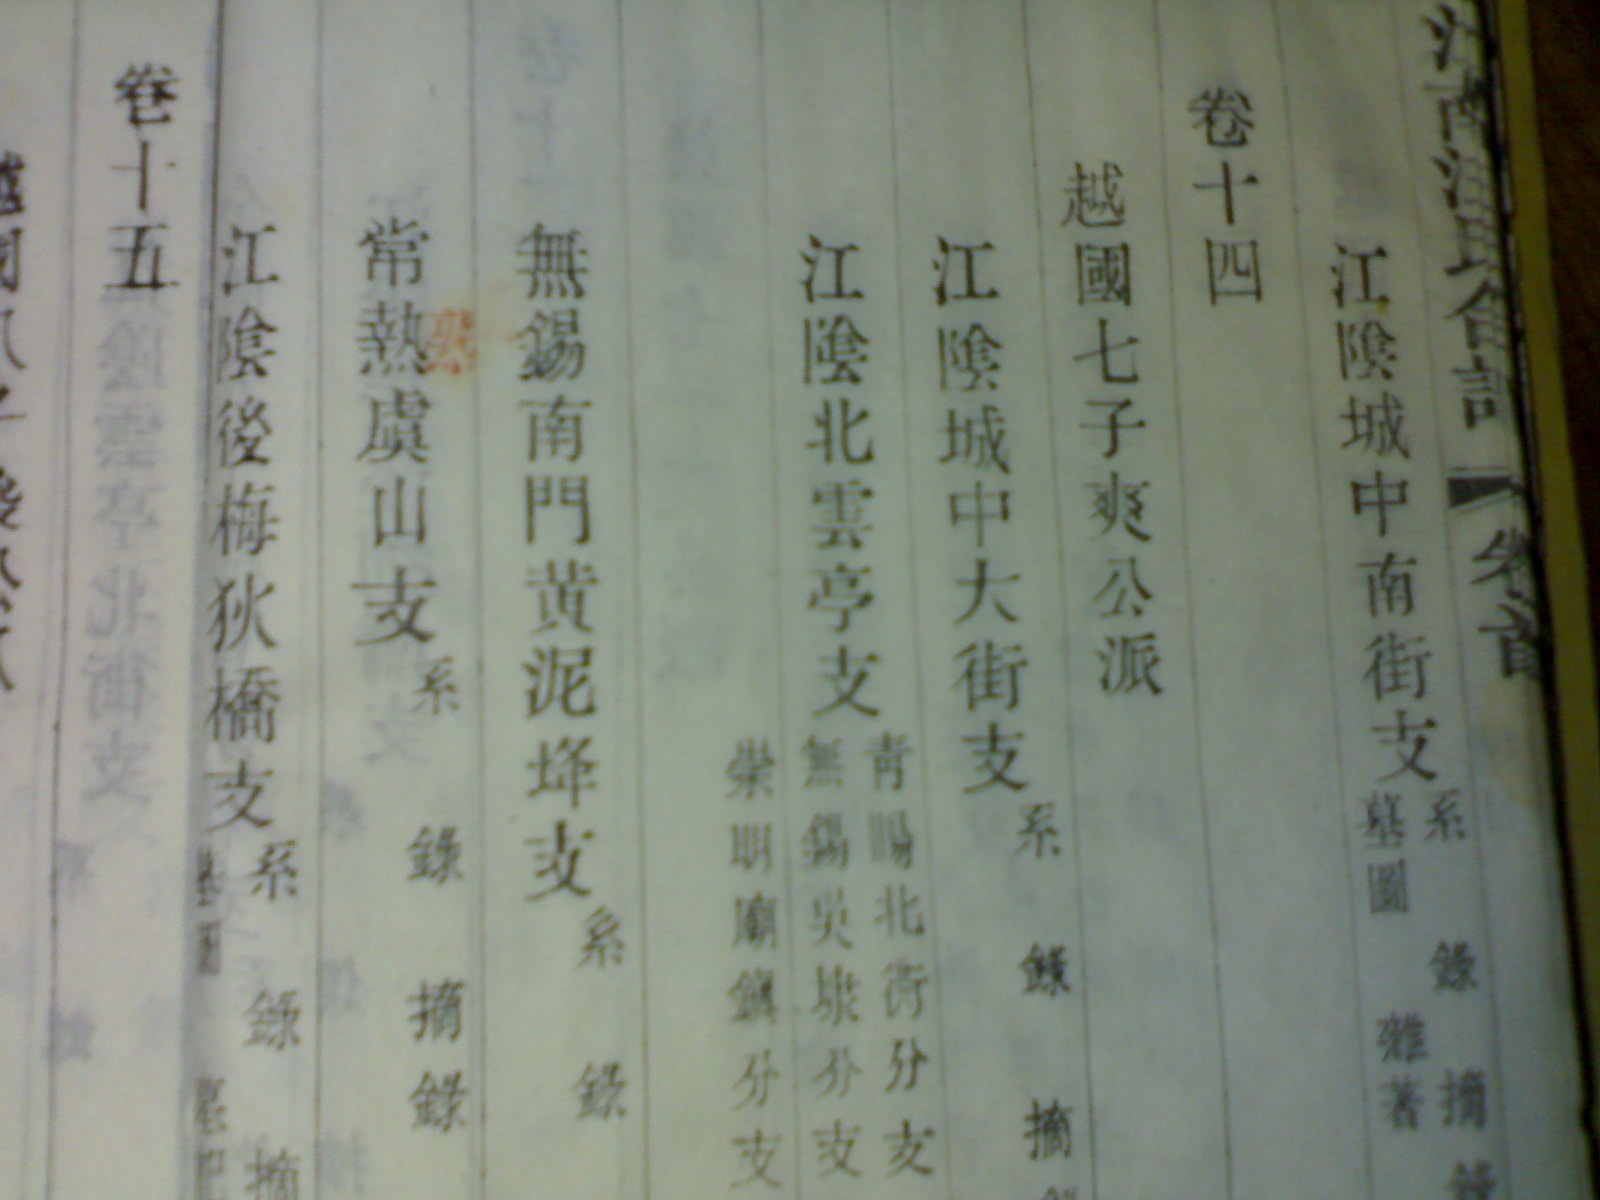 卷首
江陰城中南街支
系 錄 摘 錄
墓圖 雜著
卷十四
越國七子爽公派
江陰城中大街支
系 錄 摘
江陰北雲亭支
青暘北街分支
無錫吳埭分支
崇明廟鎮分支
無錫南門黄泥垾支
系 錄
常熟虞山支
系 錄 摘錄
江陰後梅狄橋支
系 錄 摘
墓圖 墓記
卷十五